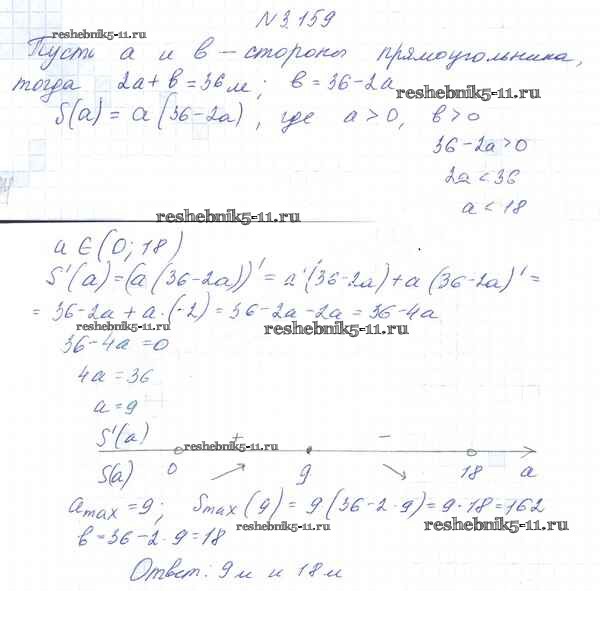 №3.159
reshebnik5-11.ru
Пусть a и в – стороны прямоугольника,
тогда 2a+в=36м; в=36-2a
reshebnik5-11.ru
S(a) = a(36-2a), где a>0, в>0
36-2a>0
2a<36
a<18
reshebnik5-11.ru
a∈(0;18)
S'(a)=(a(36-2a))'=a'(36-2a)+a(36-2a)'=
=36-2a+a·(-2)=36-2a-2a=36-4a
reshebnik5-11.ru reshebnik5-11.ru
36-4a=0
4a=36
a=9
S'(a) + –
reshebnik5-11.ru
S(a) 0 9 18 a
amax=9; Smax(9)=9(36-2·9)=9·18=162
reshebnik5-11.ru reshebnik5-11.ru
в=36-2·9=18
Ответ: 9м и 18м